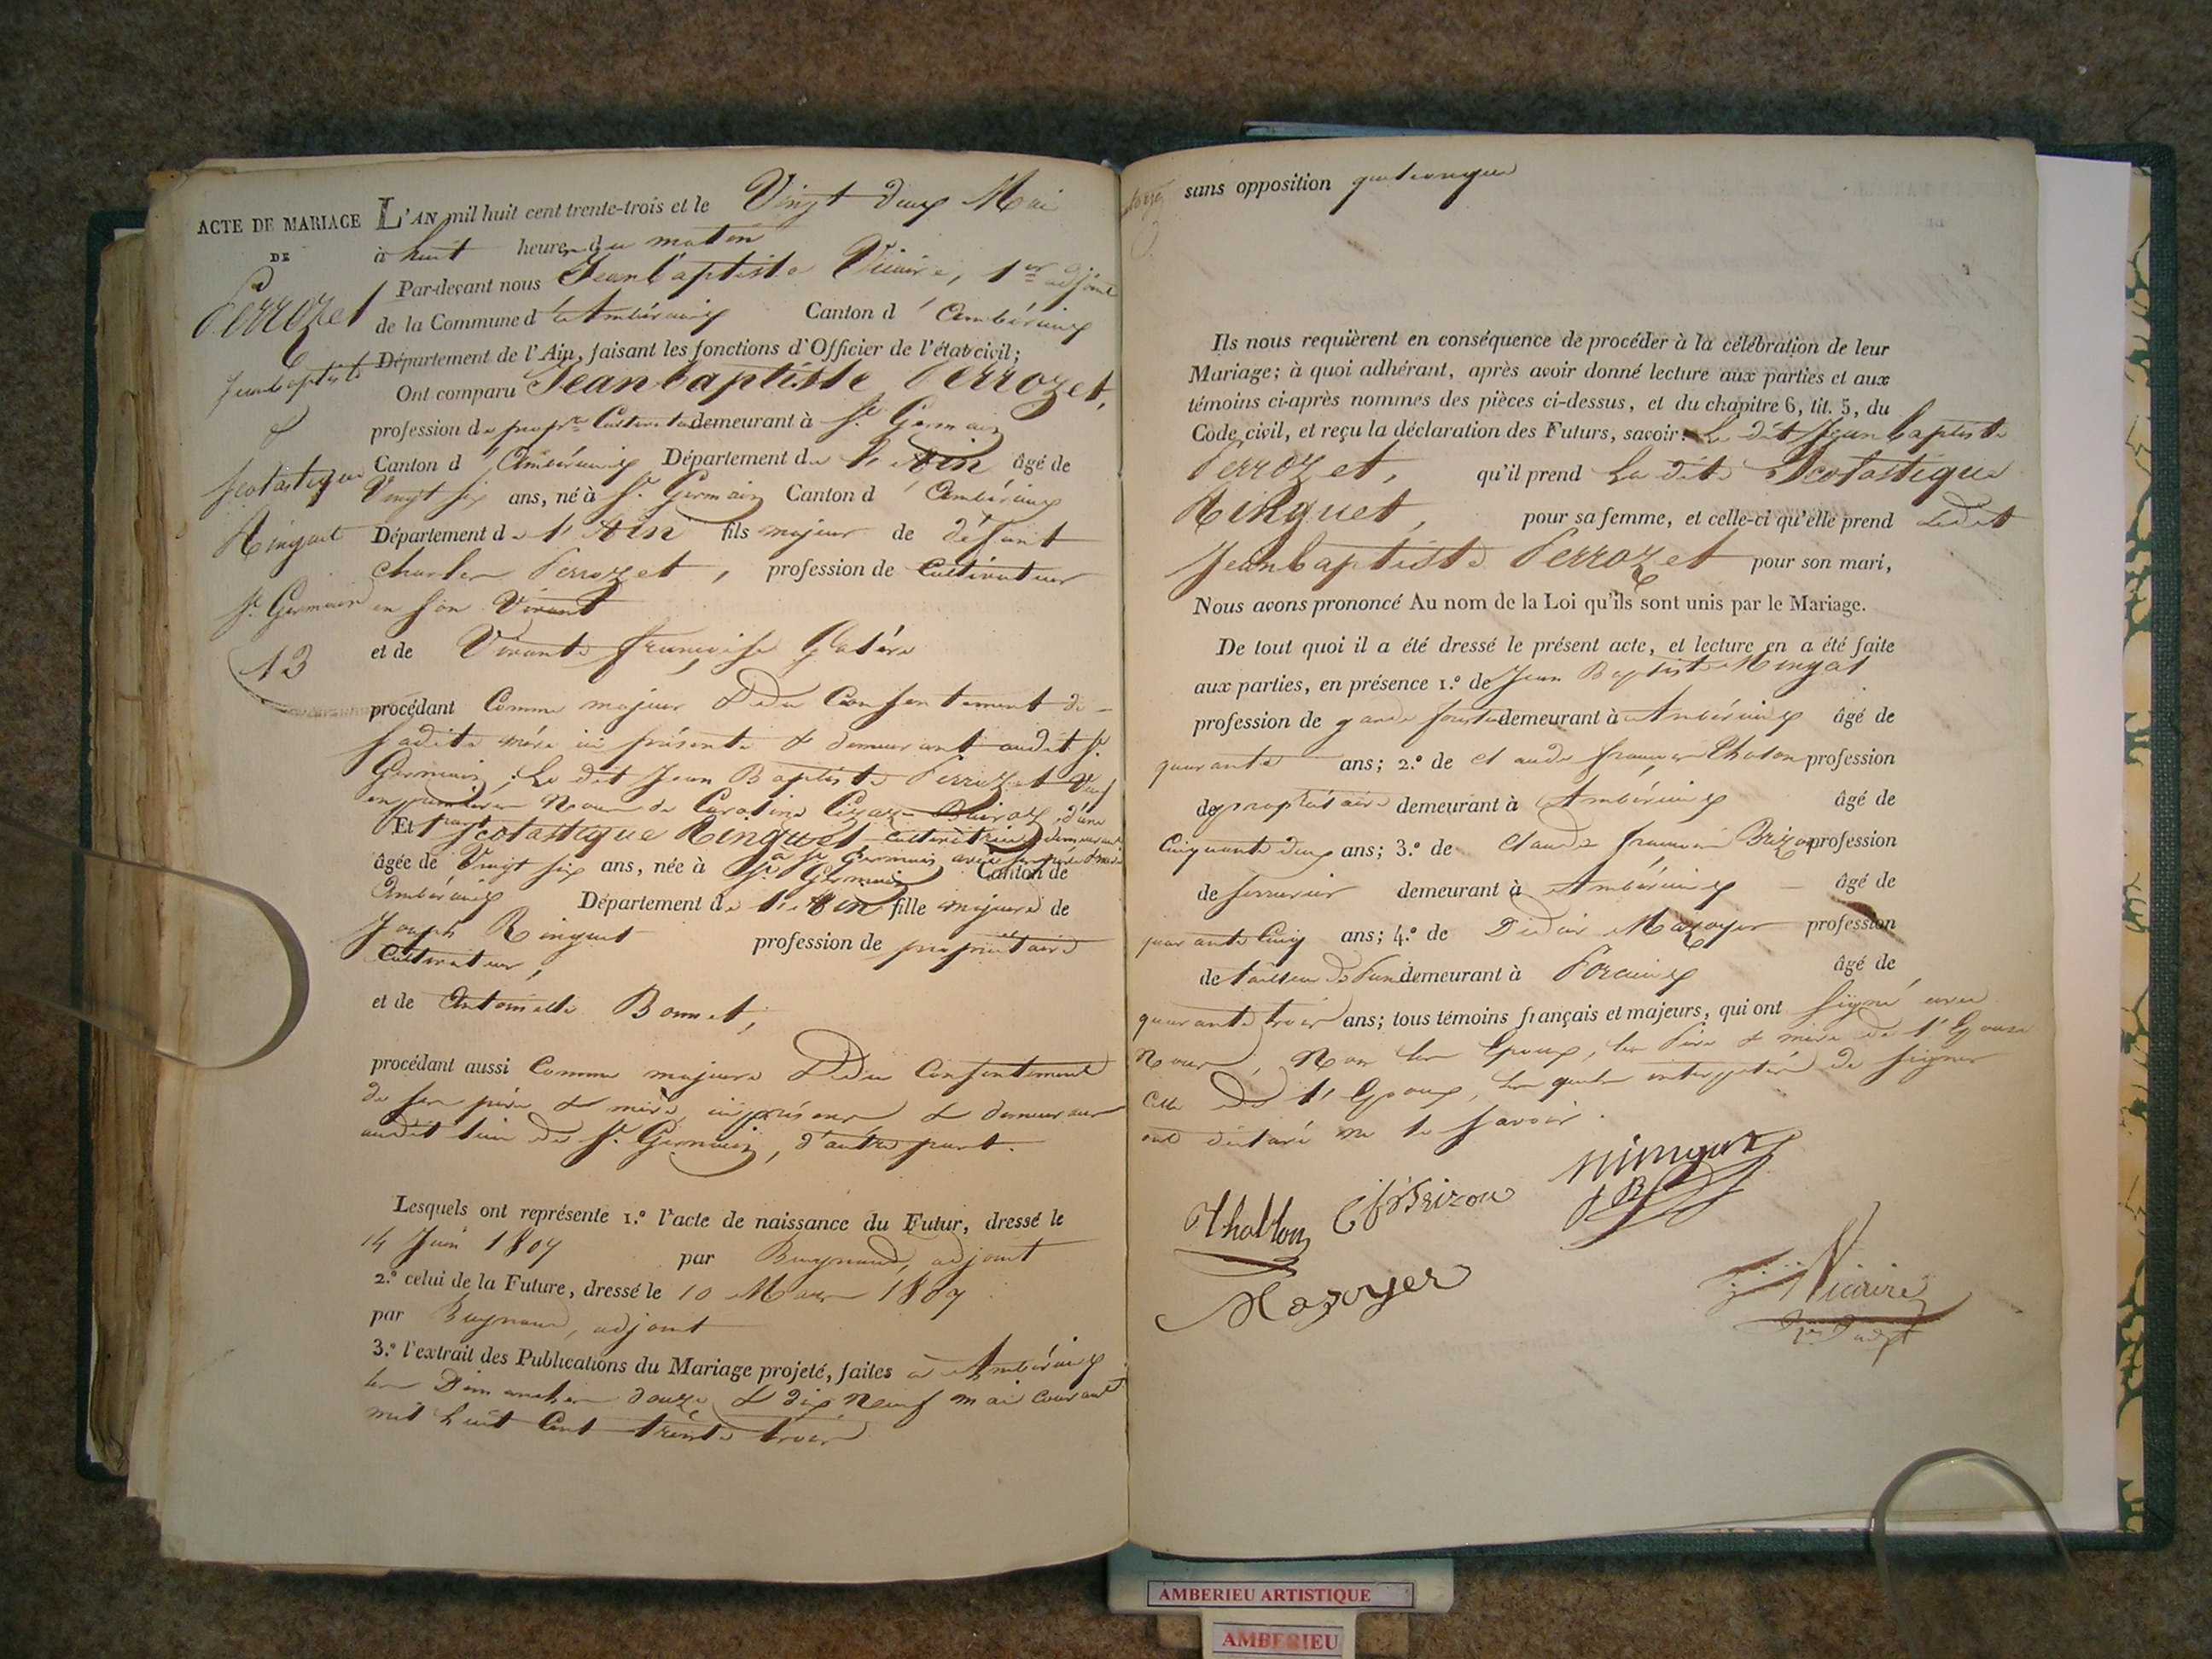 ACTE DE MARIAGE
DE
Perrozet
Jeanbaptiste
&
Scolastique
Ringuet
St. Germain
13
L'AN mil huit cent trente-trois et le Vingt deux Mai
à huit heures du matin
Par-devant nous Jeanbaptiste Vicaire, 1er adjoint
de la Commune d'Ambérieux Canton d'Ambérieux
Département de l'Ain, faisant les fonctions d'Officier de l'état civil;
Ont comparu Jeanbaptiste Perrozet,
profession de propre Cultivateur demeurant à St. Germain
Canton d'Ambérieux Département de l'Ain, âgé de
Vingt six ans, né à St. Germain Canton d'Ambérieux
Département de l'Ain fils majeur de défunt
Charles Perrozet, profession de Cultivateur
en son Vivant
et de Vivante françoise
procédant Comme majeur & du Consentement de
sadite mère ici présente & demeurant audit St.
Germain; Le dit Jean Baptiste Perrozet Veuf
en premières Noces de Caroline d'une
part
Et Scolastique Ringuet Cultivatrice demeurant
à St Germain avec ses père & mère
âgée de Vingt six ans, née à St Germain Canton de
Ambérieux Département de l'Ain fille majeure de
Joseph Ringuet profession de propriétaire
Cultivateur,
et de Antoinette Bonnet,
procédant aussi Comme majeure & du Consentement
de ses père & mère, ici présens & demeurans
audit lieu de St. Germain, d'autre part.
Lesquels ont représenté 1.° l'acte de naissance du Futur, dressé le
14 Juin 1807 par Buynand, adjoint
2.° celui de la Future, dressé le 10 Mars 1807
par Buynand, adjoint
3.° l'extrait des Publications du Mariage projeté, faites à Ambérieux
les Dimanches douze & dix Neuf mai courant
mil huit Cent trente trois
sans opposition quelconque
Ils nous requièrent en conséquence de procéder à la célébration de leur
Mariage; à quoi adhérant, après avoir donné lecture aux parties et aux
témoins ci-après nommés des pièces ci-dessus, et du chapitre 6, tit. 5, du
Code civil, et reçu la déclaration des Futurs, savoir: Le dit Jeanbaptiste
Perrozet, qu'il prend La dite Scolastique
Ringuet, pour sa femme, et celle-ci qu'elle prend Ledit
Jeanbaptiste Perrozet pour son mari,
Nous avons prononcé Au nom de la Loi qu'ils sont unis par le Mariage.
De tout quoi il a été dressé le présent acte, et lecture en a été faite
aux parties, en présence 1.° de Jean Baptiste Mingat
profession de garde forestier demeurant à Ambérieux âgé de
quarante ans; 2.° de Claude françois Tholon profession
de propriétaire demeurant à Ambérieux âgé de
Cinquante deux ans; 3.° de Claude françois Brizon profession
de serrurier demeurant à Ambérieux âgé de
quarante Cinq ans; 4.° de Didier Mazoyer profession
de tailleur de Pierre demeurant à Porcieux âgé de
quarante trois ans; tous témoins français et majeurs, qui ont signé avec
Nous, Non les Epoux, les Père & mère de l'Epouse
Celle de l'Epoux, lesquels interpelés de signer
ont déclaré ne le savoir.
Thollon CfBrizon Mingat
JB
Mazoyer Vicaire
1er adjt
AMBERIEU ARTISTIQUE
AMBERIEU